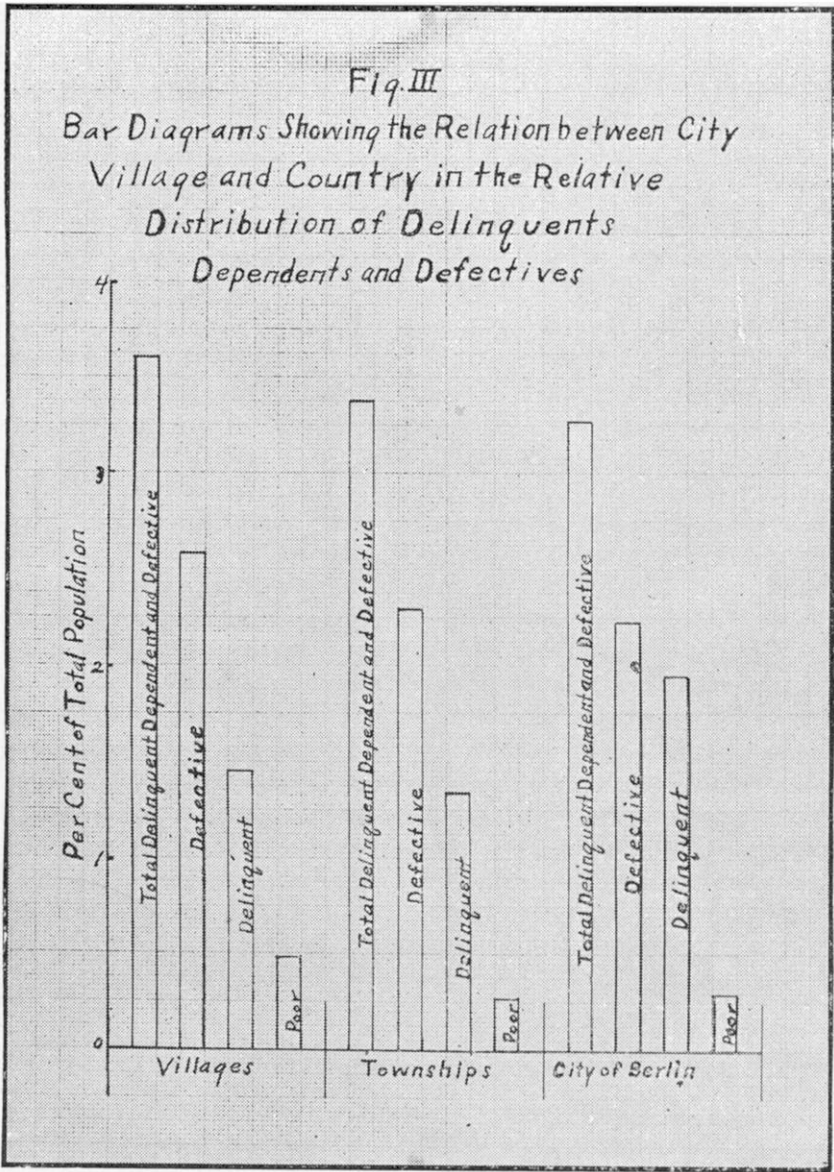 Fig. III
Bar Diagrams Showing the Relation between City
Village and Country in the Relative
Distribution of Delinquents
Dependents and Defectives
4
3
2
1
0
Per Cent of Total Population
Total Delinquent Dependent and Defective
Defective
Delinquent
Poor
Total Delinquent Dependent and Defective
Defective
Delinquent
Poor
Total Delinquent Dependent and Defective
Defective
Delinquent
Poor
Villages
Townships
City of Berlin